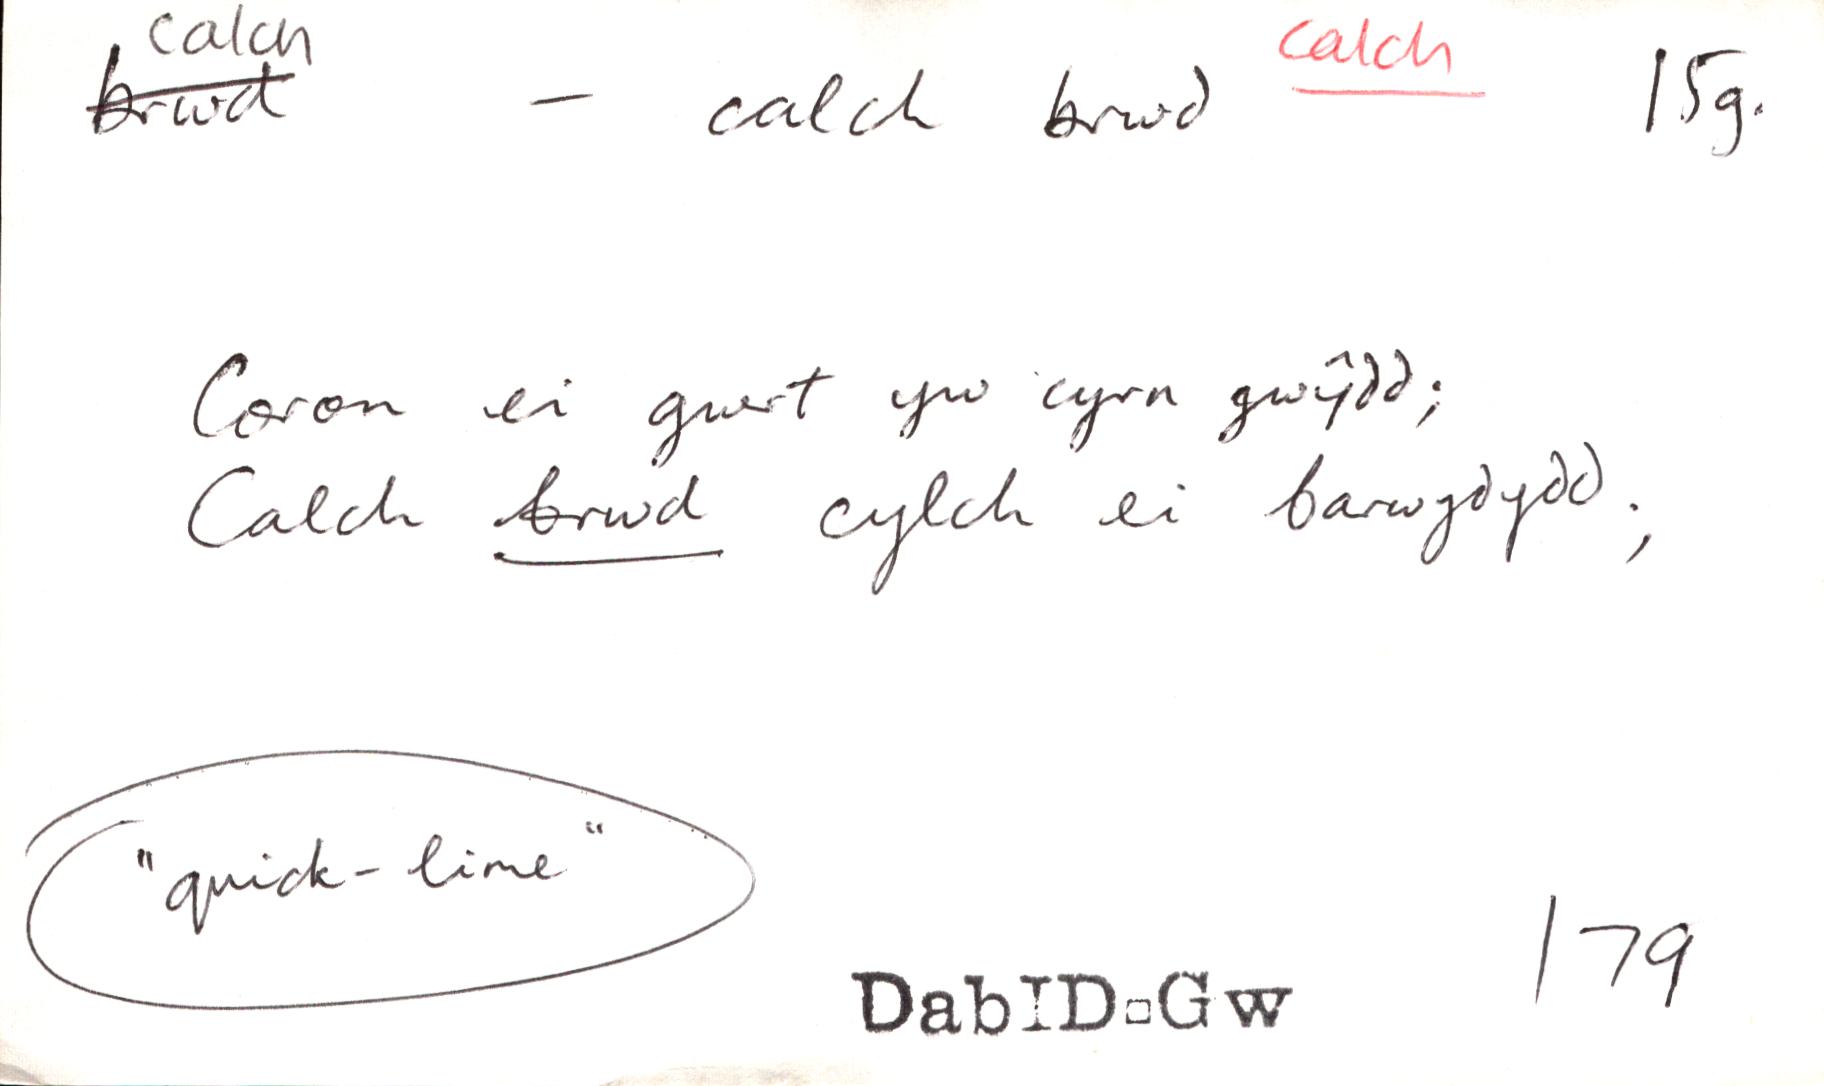 calch calch
brwd – calch brwd 15g.
Coron ei gwert yw cyrn gwŷdd;
Calch brwd cylch ei barwydydd;
"quick-lime"
179
DabID-Gw